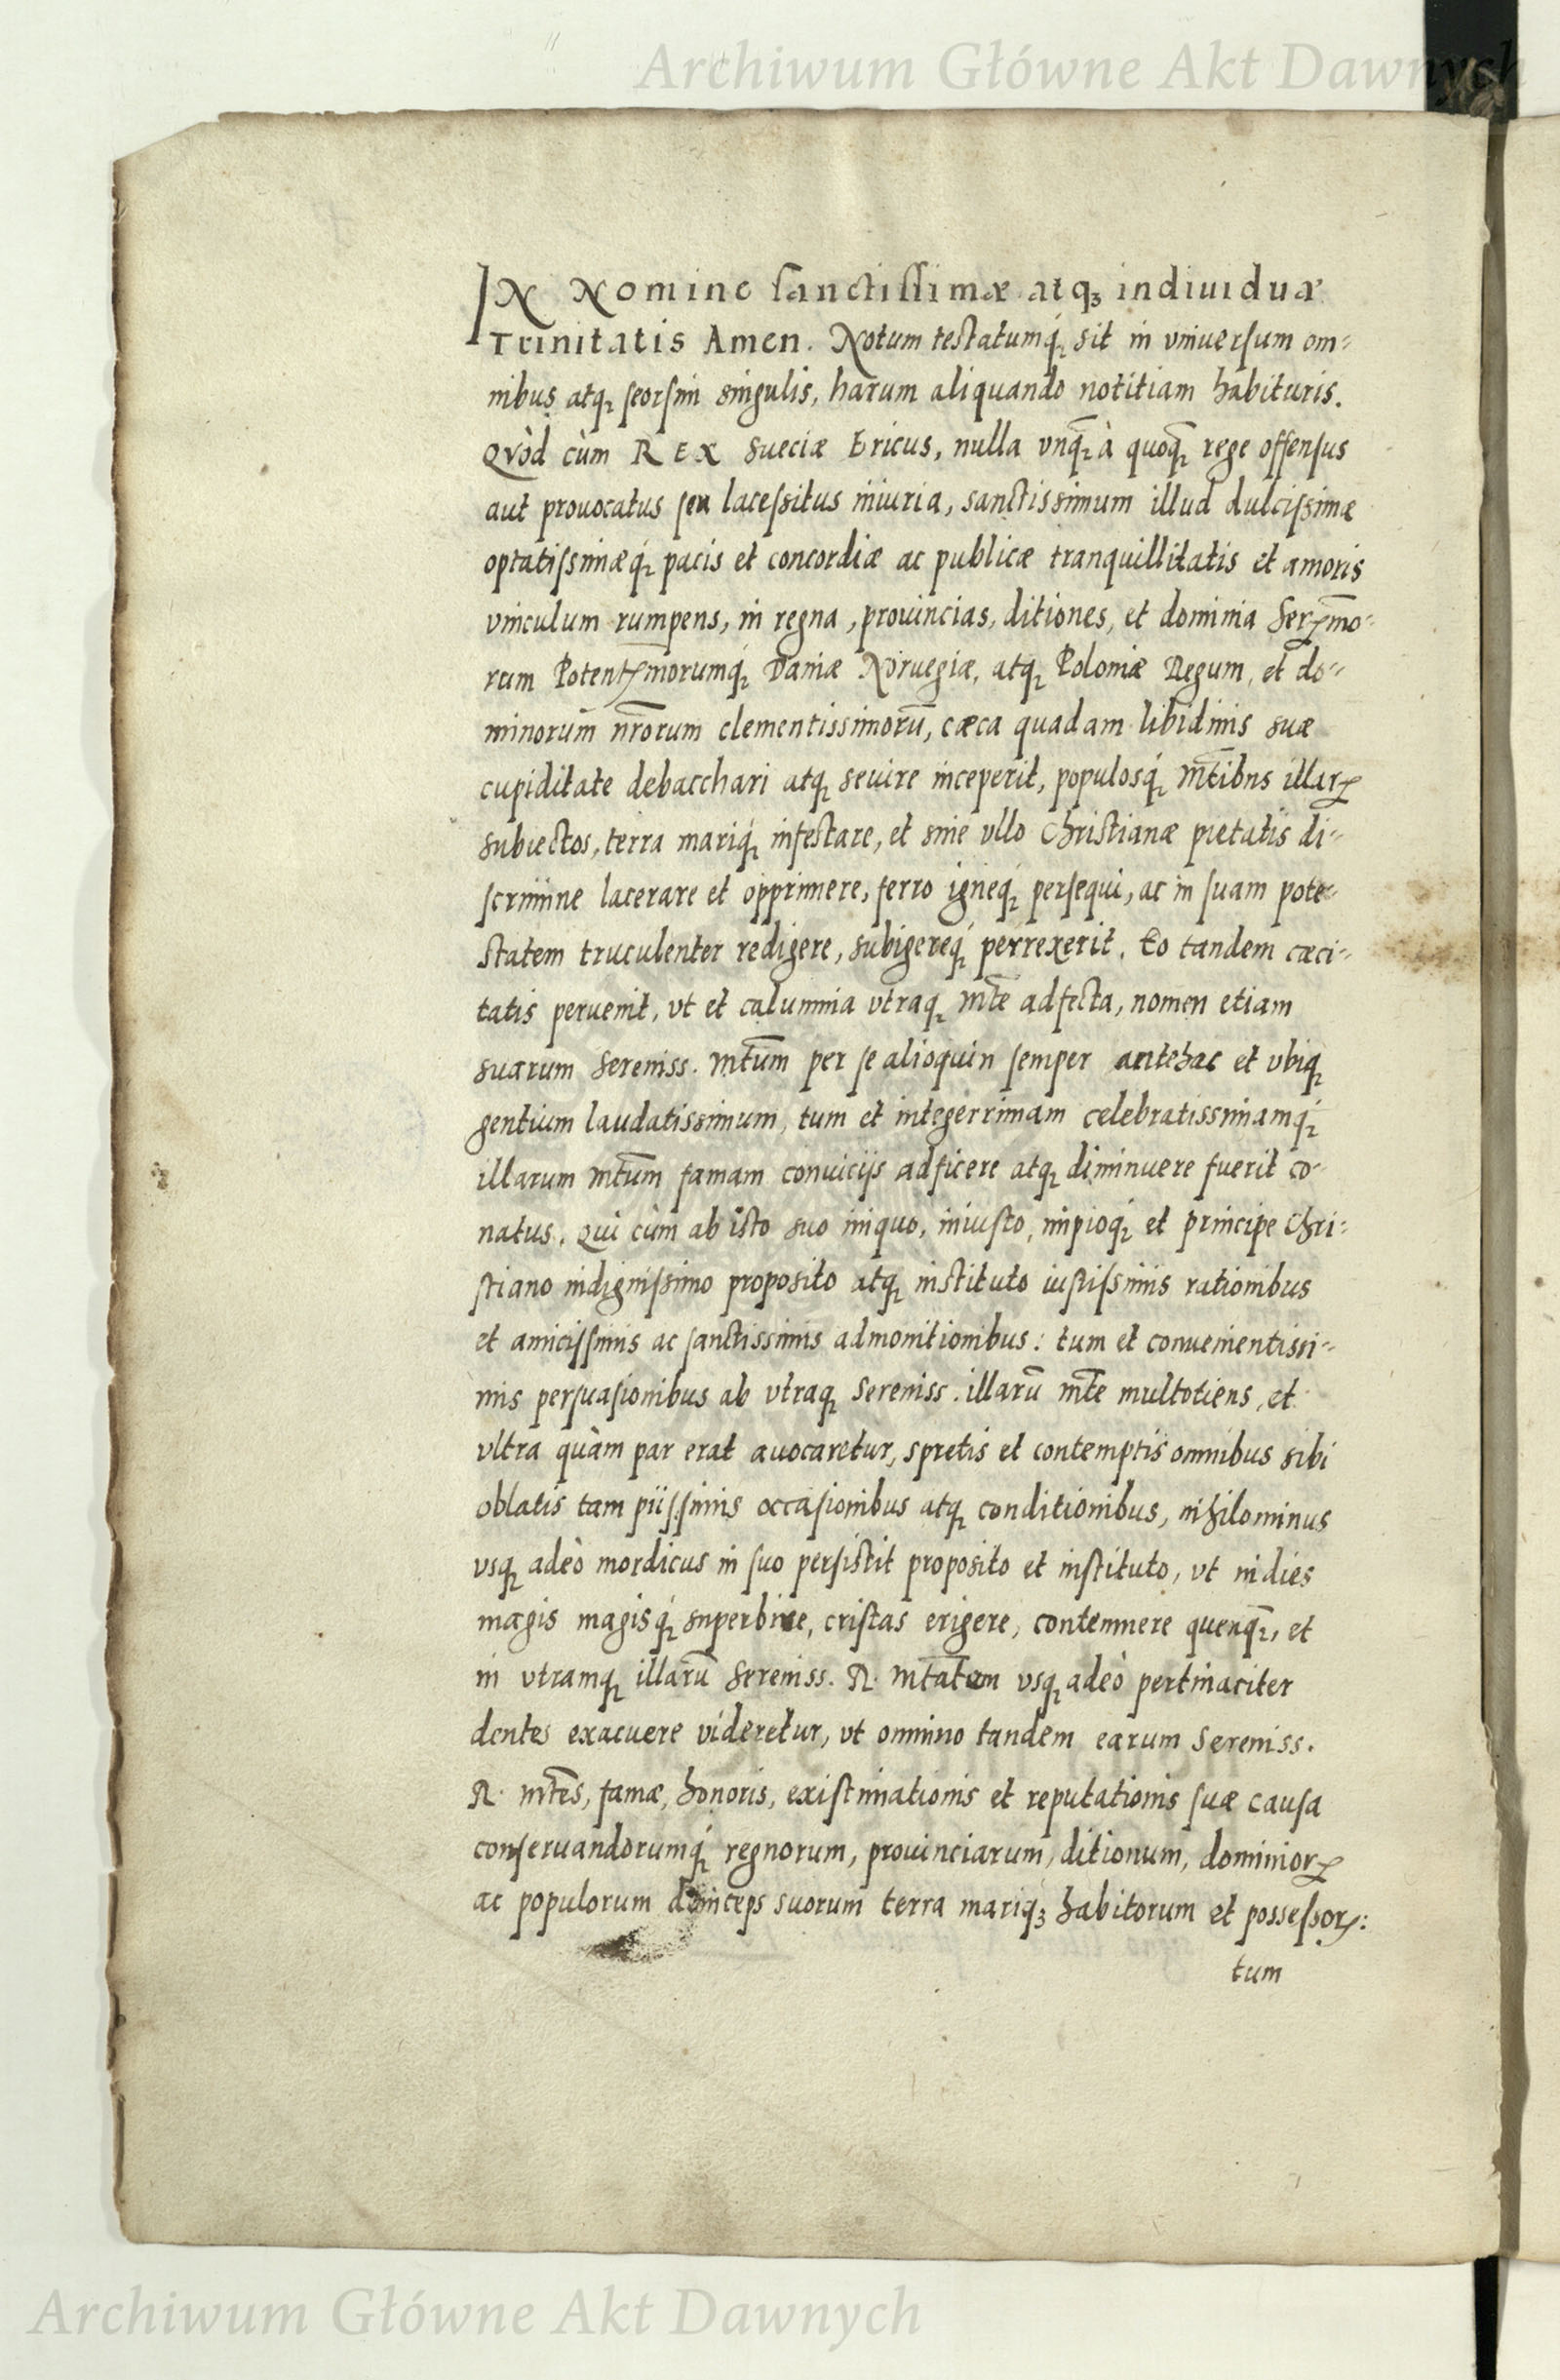 Archiwum Główne Akt Dawnych
IN Nomine sanctissimæ atq₃ indiuiduæ
Trinitatis Amen. Notum testatumq́; sit in vniuersum om=
nibus atq; seorsim singulis, harum aliquando notitiam habituris.
Qvòd cùm REX Sueciæ Ericus, nulla vnq̄; à quoq̄; rege offensus
aut prouocatus seu lacessitus iniuria, sanctissimum illud dulcissimæ
optatissimæq́; pacis et concordiæ ac publicæ tranquillitatis et amoris
vinculum rumpens, in regna, prouincias, ditiones, et dominia Serꝫm̄o=
rum Potentꝫmorumq́; Daniæ Noruegiæ, atq; Poloniæ Regum, et do=
minorum nr̄orum clementissimorū, cæca quadam libidinis suæ
cupiditate debacchari atq; seuire inceperit, populosq́; Mt̄ibus illarꝝ
subiectos, terra mariq́; infestare, et sine vllo Christianæ pietatis di=
scrimine lacerare et opprimere, ferro igneq́; persequi, ac in suam pote=
statem truculenter redigere, subigereq́; perrexerit. Eo tandem cæci=
tatis peruenit, vt et calumnia vtraq; Mt̄e adfecta, nomen etiam
suarum Sereniss. Mt̄um per se alioquin semper antehac et vbiq;
gentium laudatissimum, tum et integerrimam celebratissimamq́;
illarum Mt̄um famam conuicijs adficere atq; diminuere fuerit co=
natus. Qui cùm ab isto suo iniquo, iniusto, impioq́; et principe Chri=
stiano indignissimo proposito atq; instituto iustissimis rationibus
et amicissimis ac sanctissimis admonitionibus: tum et conuenientissi=
mis persuasionibus ab vtraq; Sereniss. illarū Mt̄e multotiens, et
vltra quàm par erat auocaretur, spretis et contemptis omnibus sibi
oblatis tam piissimis occasionibus atq; conditionibus, nihilominus
vsq; adeò mordicus in suo persistit proposito et instituto, vt indies
magis magisq́; superbire, cristas erigere, contemnere quenq̄;, et
in vtramq; illarū Sereniss. R. Mt̄atem vsq; adeò pertinaciter
dentes exacuere videretur, vt omnino tandem earum Sereniss.
R. Mt̄es, famæ, honoris, existimationis et reputationis suæ causa
conseruandorumq́; regnorum, prouinciarum, ditionum, dominiorꝝ
ac populorum deinceps suorum terra mariq₃ habitorum et possessorꝝ:
tum
Archiwum Główne Akt Dawnych